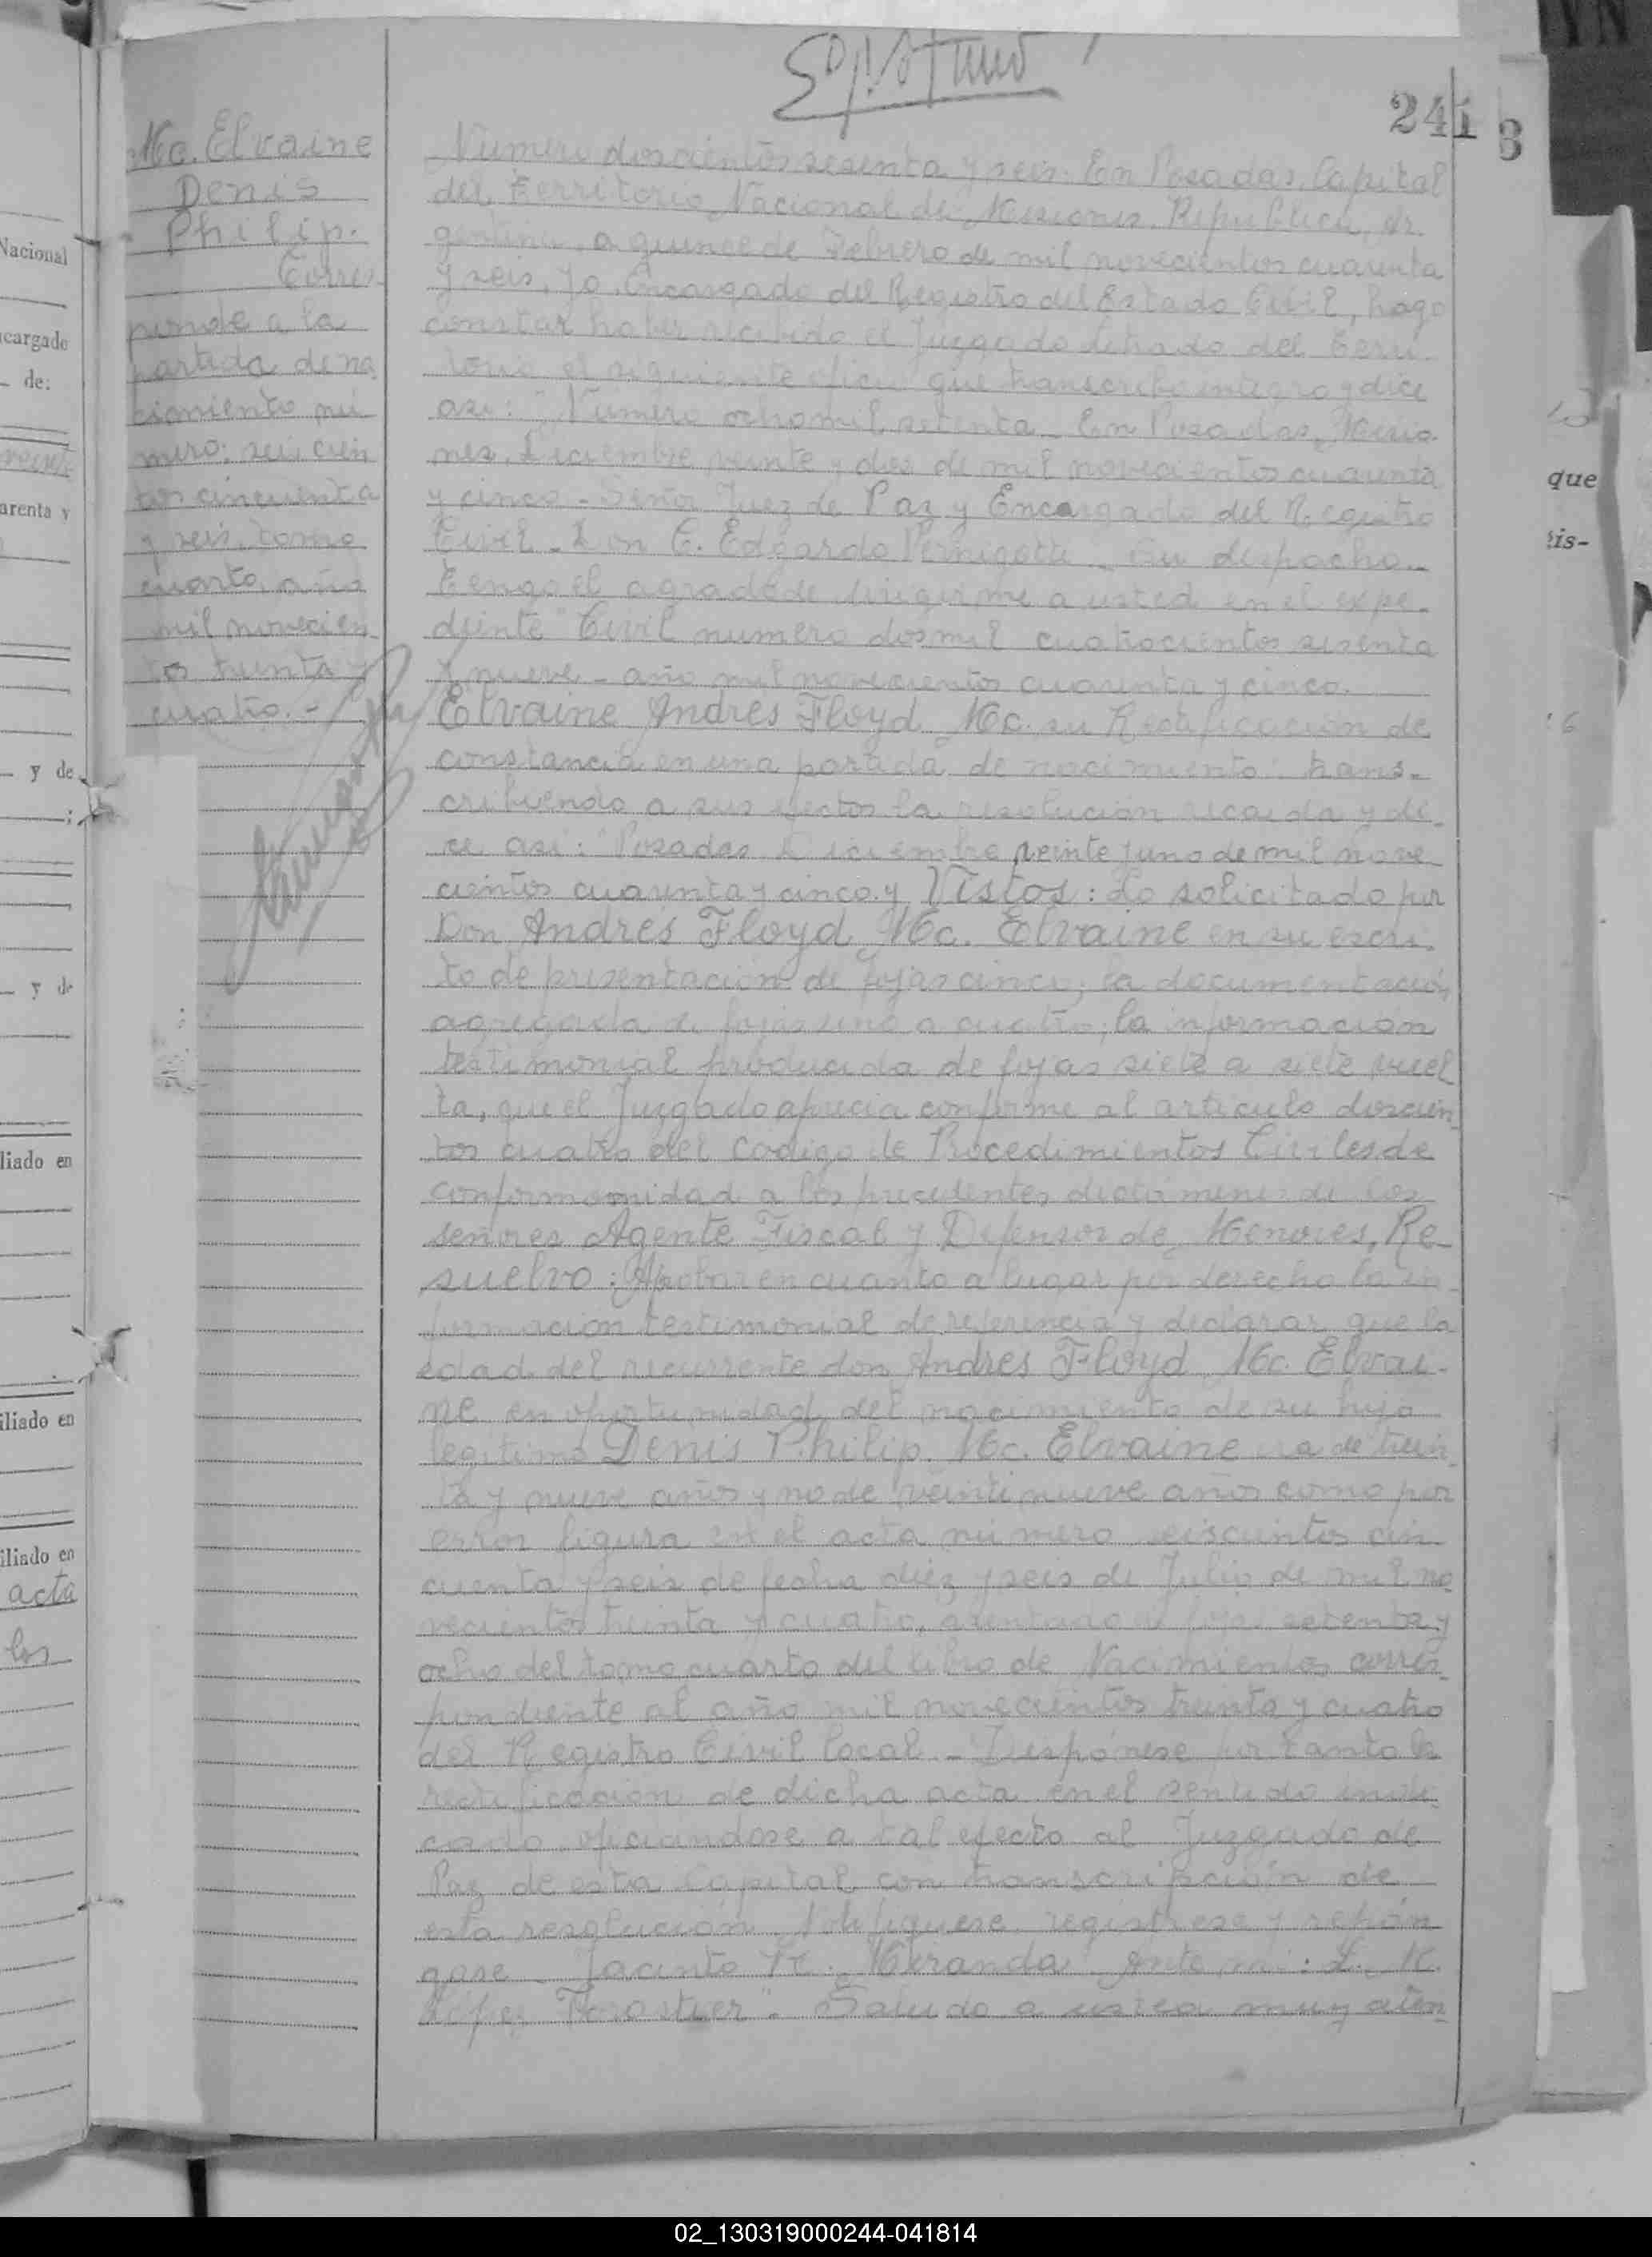 241
8
Mc. Elvaine
Denis
Philip.
Corres-
ponde a la
partida de na
cimiento nú
mero: seis cien
tos cincuenta
y seis, tomo
cuarto, año
mil novecien
tos treinta y
cuatro.-
Numero doscientos sesenta y seis. En Posadas, Capital
del Territorio Nacional de Misiones, Republica, Ar-
gentina, a quince de Febrero de mil novecientos cuarenta
y seis, yo, Encargado del Registro del Estado Civil, hago
constar haber recibido el Juzgado Letrado del Terri-
torio el siguiente oficio que transcribo integro y dice
asi: "Numero ocho mil setenta - En Posadas, Misio-
nes, Diciembre veinte y dos de mil novecientos cuarenta
y cinco - Señor Juez de Paz y Encargado del Registro
Civil - Don C. Edgardo Pernigotti - Su despacho -
Tengo el agrado de dirigirme a usted en el expe-
diente "Civil numero dos mil cuatrocientos sesenta
y nueve - año mil novecientos cuarenta y cinco.
Elvaine Andres Floyd Mc. su Rectificación de
constancia en una partida de nacimiento" trans-
cribiendo a sus efectos la resolución recaida y di-
ce asi: "Posadas Diciembre veinte y uno de mil nove-
cientos cuarenta y cinco. y Vistos: Lo solicitado por
Don Andrés Floyd Mc. Elvaine en su escri-
to de presentación de fojas cinco; la documentación
agregada de fojas una a cuatro; la información
testimonial producida de fojas siete a siete vuel
ta, que el Juzgado aprecia conforme al articulo doscien
tos cuatro del Codigo de Procedimientos Civiles de
conformomidad a los precedentes dictámenes de los
señores Agente Fiscal y Defensor de Menores, Re-
suelvo: Aprobar en cuanto a lugar por derecho la in-
formación testimonial de referencia y declarar que la
edad del recurrente don Andres Floyd Mc. Elvai-
ne en oportunidad del nacimiento de su hijo
legitimo Denis Philip Mc. Elvaine era de trein
ta y nueve años y no de veintinueve años como por
error figura en el acta número seiscientos cin
cuenta y seis de fecha diez y seis de Julio de mil no
vecientos treinta y cuatro, asentado a fojas setenta y
ocho del tomo cuarto del libro de Nacimientos corres-
pondiente al año mil novecientos treinta y cuatro
del Registro Civil local - Dispónese por tanto la
rectificación de dicha acta en el sentido indi-
cado oficiandose a tal efecto al Juzgado de
Paz de esta Capital con transcripción de
esta resolución. Notifiquese registrese y repón
gase - Jacinto R. Miranda Ante mi: L. M.
López Forastier". Saludo a usted muy aten
Nacional
cargado
de:
arenta y
y de
;
y de
liado en
iliado en
iliado en
acta
los
que
tis-
02_130319000244-041814